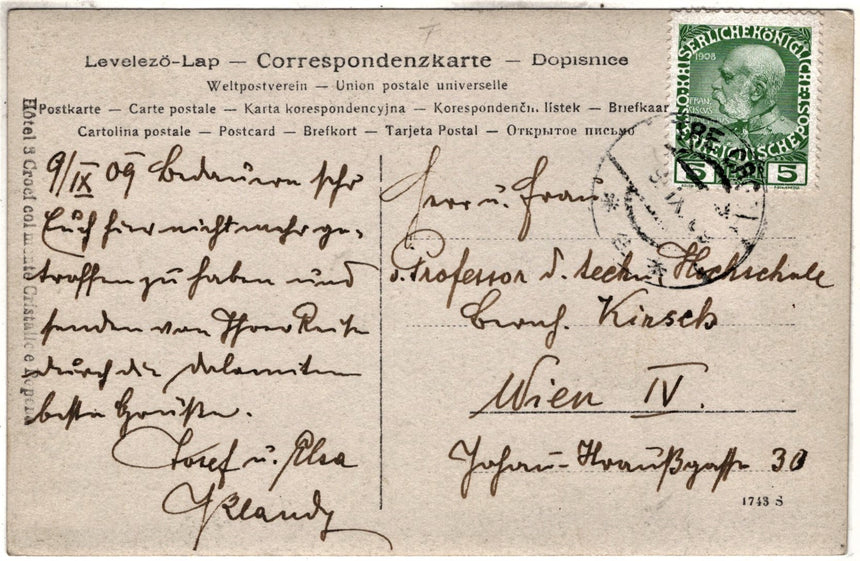 Levelező-Lap — Correspondenzkarte — Dopisnice
Weltpostverein — Union postale universelle
Postkarte — Carte postale — Karta korespondencyjna — Korespondenčn. lístek — Briefkaar
Cartolina postale — Postcard — Brefkort — Tarjeta Postal — Открытое письмо
KAISERLICHEKÖNIGLICHE
ÖSTERREICHISCHE POST
1908
5 5
9/IX 09 Bedauern sehr
Euch hier nicht mehr ge-
troffen zu haben und
senden von Ihrer Reise
durch die Dolomiten
beste Grüße.
Josef u. Elsa
Herr u. Frau
Professor d. techn. Hochschule
Bernh. Kirsch
Wien IV.
Johann-Straußgasse 30
1743 S
Hôtel 3 Croci col monte Cristallo e